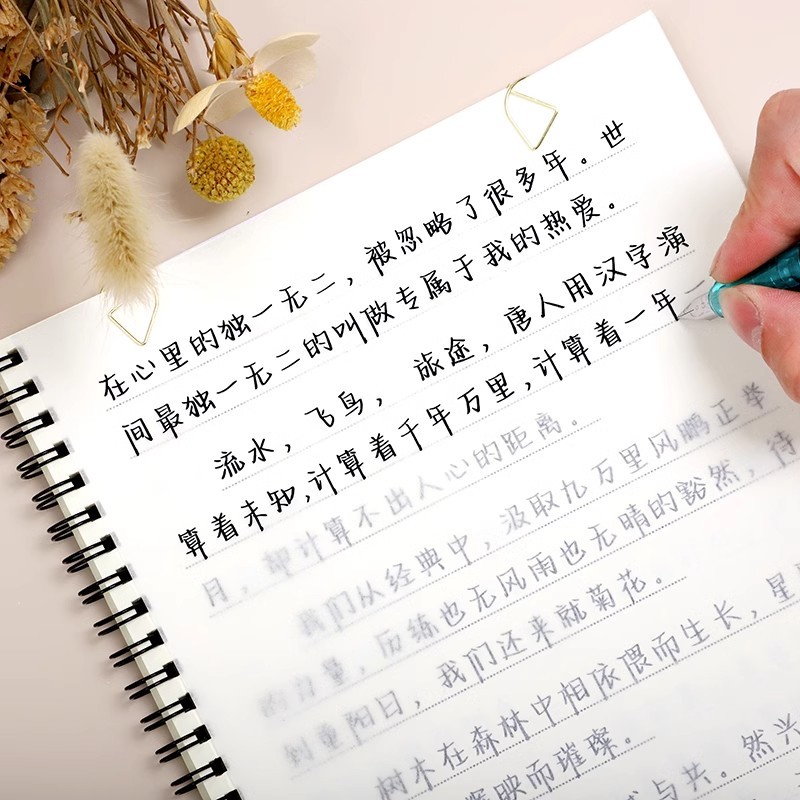 在心里的独一无二，被忽略了很多年。世
间最独一无二的叫做专属于我的热爱。
流水，飞鸟，旅途，唐人用汉字演
算着未知，计算着千年万里，计算着一年一
月，却计算不出人心的距离。
我们从经典中，汲取九万里风鹏正举
的力量，历练也无风雨也无晴的豁然，待
到重阳日，我们还来就菊花。
树木在森林中相依偎而生长，星
辉映而璀璨。
与共。然兴